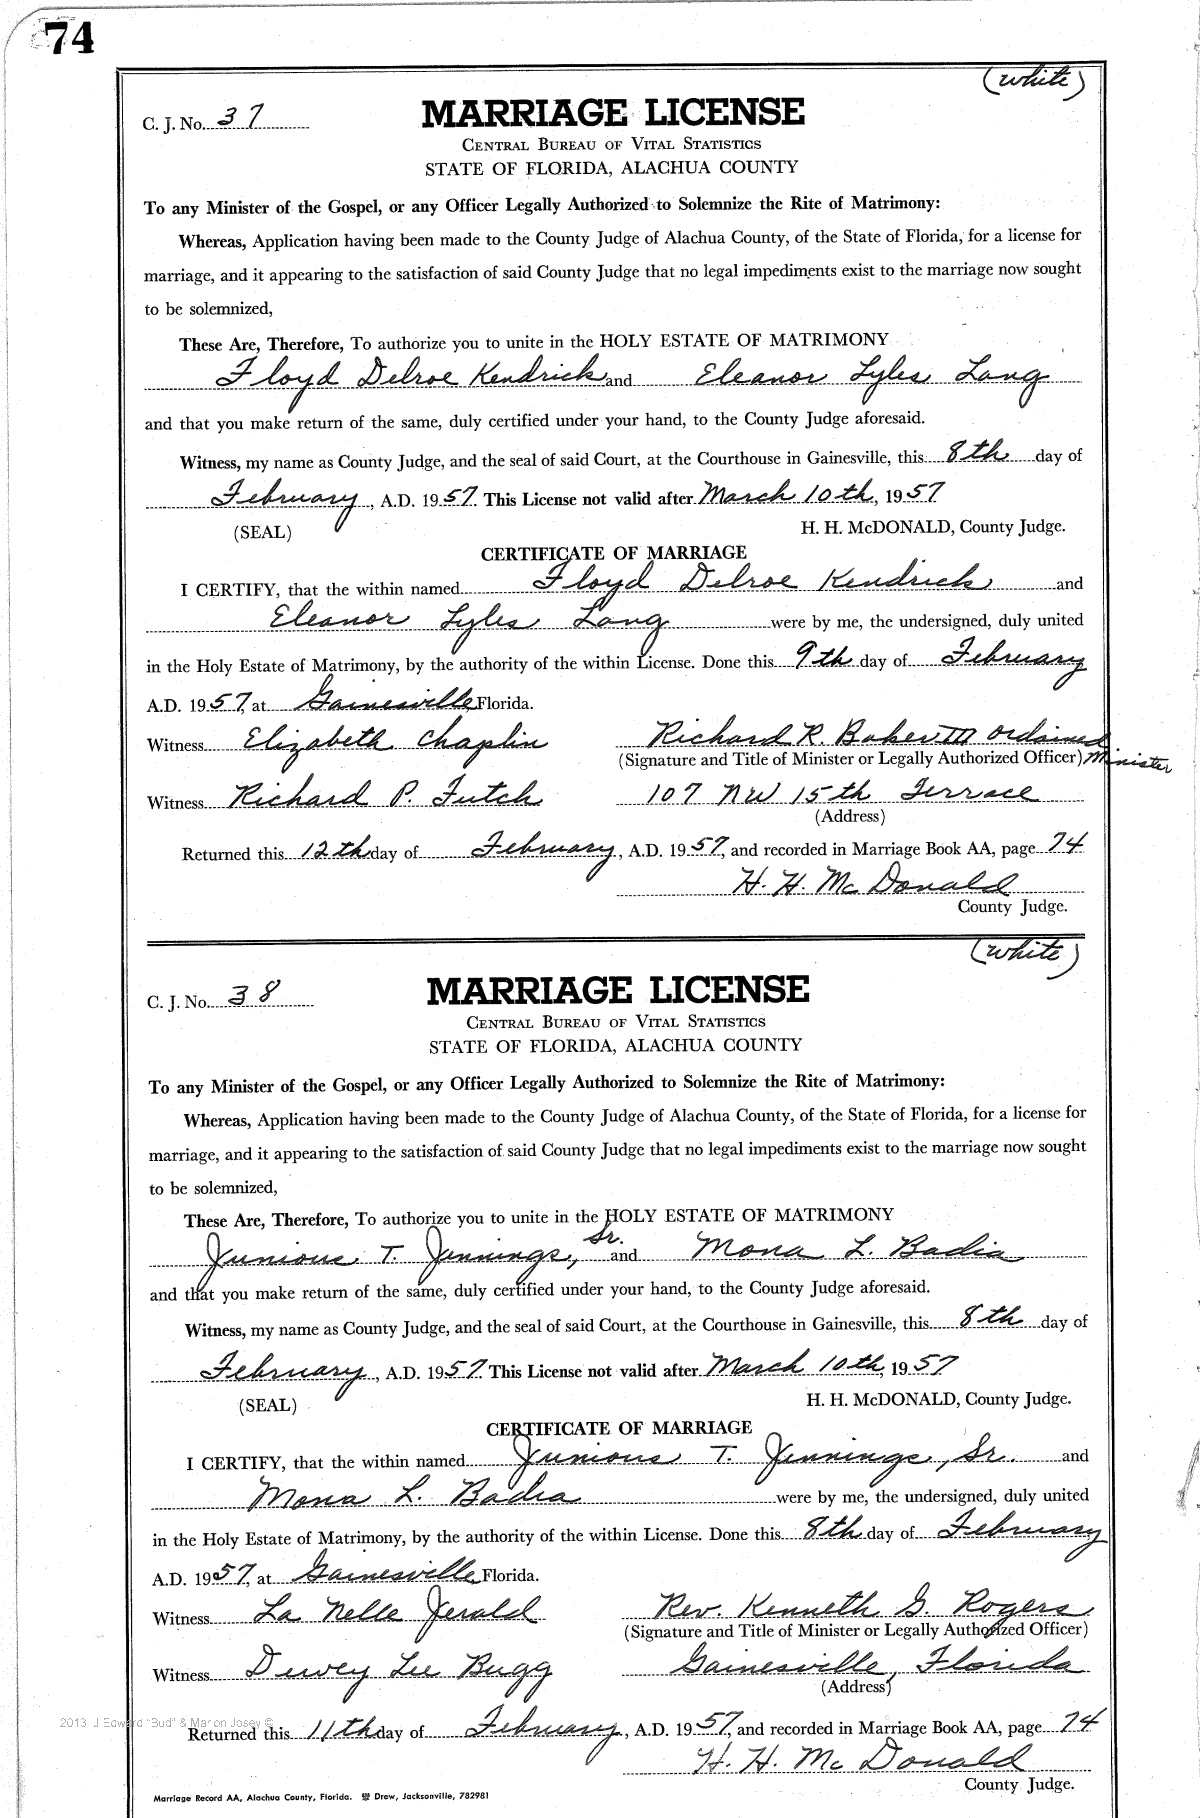 74
(white)
C. J. No. 37
MARRIAGE LICENSE
CENTRAL BUREAU OF VITAL STATISTICS
STATE OF FLORIDA, ALACHUA COUNTY
To any Minister of the Gospel, or any Officer Legally Authorized to Solemnize the Rite of Matrimony:
Whereas, Application having been made to the County Judge of Alachua County, of the State of Florida, for a license for
marriage, and it appearing to the satisfaction of said County Judge that no legal impediments exist to the marriage now sought
to be solemnized,
These Are, Therefore, To authorize you to unite in the HOLY ESTATE OF MATRIMONY
Floyd Delroe Kendrick and Eleanor Lyles Lang
and that you make return of the same, duly certified under your hand, to the County Judge aforesaid.
Witness, my name as County Judge, and the seal of said Court, at the Courthouse in Gainesville, this 8th day of
February, A.D. 1957. This License not valid after March 10th, 1957
(SEAL) H. H. McDONALD, County Judge.
CERTIFICATE OF MARRIAGE
I CERTIFY, that the within named Floyd Delroe Kendrick and
Eleanor Lyles Lang were by me, the undersigned, duly united
in the Holy Estate of Matrimony, by the authority of the within License. Done this 9th day of February
A.D. 1957, at Gainesville Florida.
Witness Elizabeth Chaplin Richard R. Baker III ordained
(Signature and Title of Minister or Legally Authorized Officer) Minister
Witness Richard P. Futch 107 NW 15th Terrace
(Address)
Returned this 12th day of February, A.D. 1957, and recorded in Marriage Book AA, page 74
H. H. McDonald
County Judge.
(white)
C. J. No. 38
MARRIAGE LICENSE
CENTRAL BUREAU OF VITAL STATISTICS
STATE OF FLORIDA, ALACHUA COUNTY
To any Minister of the Gospel, or any Officer Legally Authorized to Solemnize the Rite of Matrimony:
Whereas, Application having been made to the County Judge of Alachua County, of the State of Florida, for a license for
marriage, and it appearing to the satisfaction of said County Judge that no legal impediments exist to the marriage now sought
to be solemnized,
These Are, Therefore, To authorize you to unite in the HOLY ESTATE OF MATRIMONY
Junious T. Jennings, Sr. and Mona L. Badia
and that you make return of the same, duly certified under your hand, to the County Judge aforesaid.
Witness, my name as County Judge, and the seal of said Court, at the Courthouse in Gainesville, this 8th day of
February, A.D. 1957. This License not valid after March 10th, 1957
(SEAL) H. H. McDONALD, County Judge.
CERTIFICATE OF MARRIAGE
I CERTIFY, that the within named Junious T. Jennings, Sr. and
Mona L. Badia were by me, the undersigned, duly united
in the Holy Estate of Matrimony, by the authority of the within License. Done this 8th day of February
A.D. 1957, at Gainesville Florida.
Witness La Nelle Jerald Rev. Kenneth G. Rogers
(Signature and Title of Minister or Legally Authorized Officer)
Witness Dewey Lee Bugg Gainesville, Florida
(Address)
2013 J Edward "Bud" & Marion Josey ©
Returned this 11th day of February, A.D. 1957, and recorded in Marriage Book AA, page 74
H. H. McDonald
County Judge.
Marriage Record AA, Alachua County, Florida. Drew, Jacksonville, 782981